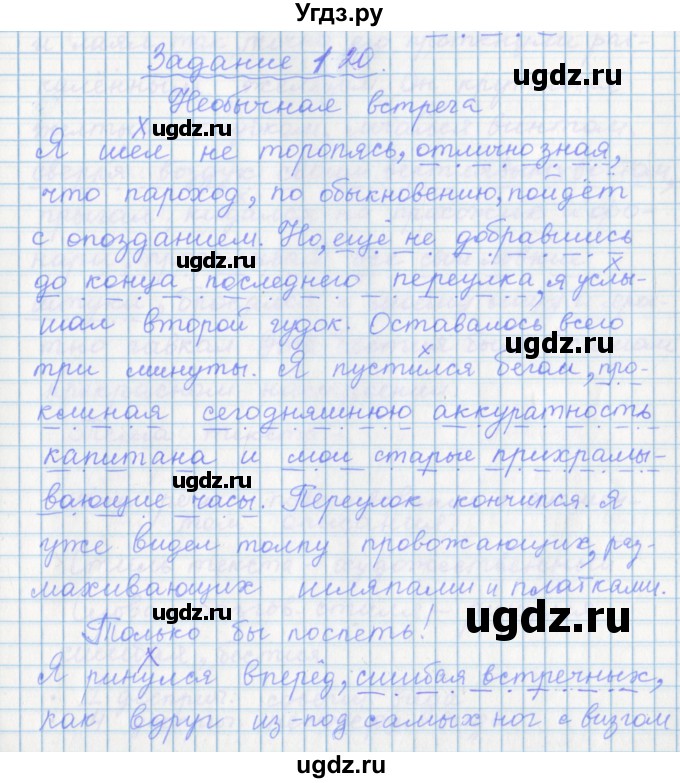 Угдз.ру
Задание 120.
Необычная встреча
Я шел не торопясь, отлично зная,
что пароход, по обыкновению, пойдёт
с опозданием. Но, ещё не добравшись
до конца последнего переулка, я услы-
шал второй гудок. Оставалось всего
три минуты. Я пустился бегом, про-
клиная сегодняшнюю аккуратность
капитана и мои старые прихрамы-
вающие часы. Переулок кончился. Я
уже видел толпу провожающих, раз-
махивающих шляпами и платками.
Только бы поспеть!
Я ринулся вперёд, сшибая встречных,
как вдруг из-под самых ног с визгом
ugdz.ru
ugdz.ru
ugdz.ru
ugdz.ru
ugdz.ru
ugdz.ru
ugdz.ru
ugdz.ru
ugdz.ru
ugdz.ru